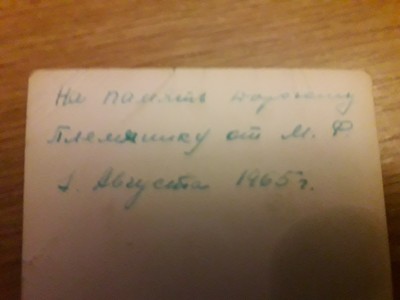 На память дорогому
Племяннику от М. Ф.
1. Августа 1965 г.